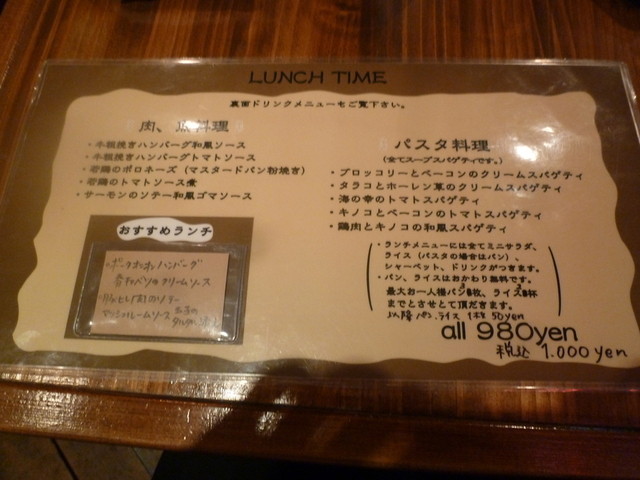 LUNCH TIME
裏面ドリンクメニューもご覧下さい。
肉、魚料理
・牛粗挽きハンバーグ和風ソース
・牛粗挽きハンバーグトマトソース
・若鶏のポロネーズ（マスタードパン粉焼き）
・若鶏のトマトソース煮
・サーモンのソテー和風ゴマソース
おすすめランチ
ハンバーグ
クリームソース
ソテー
マッシュルームソース
パスタ料理
（全てスープスパゲティです。）
・ブロッコリーとベーコンのクリームスパゲティ
・タラコとホーレン草のクリームスパゲティ
・海の幸のトマトスパゲティ
・キノコとベーコンのトマトスパゲティ
・鶏肉とキノコの和風スパゲティ
・ランチメニューには全てミニサラダ、
ライス（パスタの場合はパン）、
シャーベット、ドリンクがつきます。
・パン、ライスはおかわり無料です。
最大お一人様パン枚、ライス杯
までとさせて頂だきます。
以降パン、ライス 50yen
all 980yen
税込 1.000yen